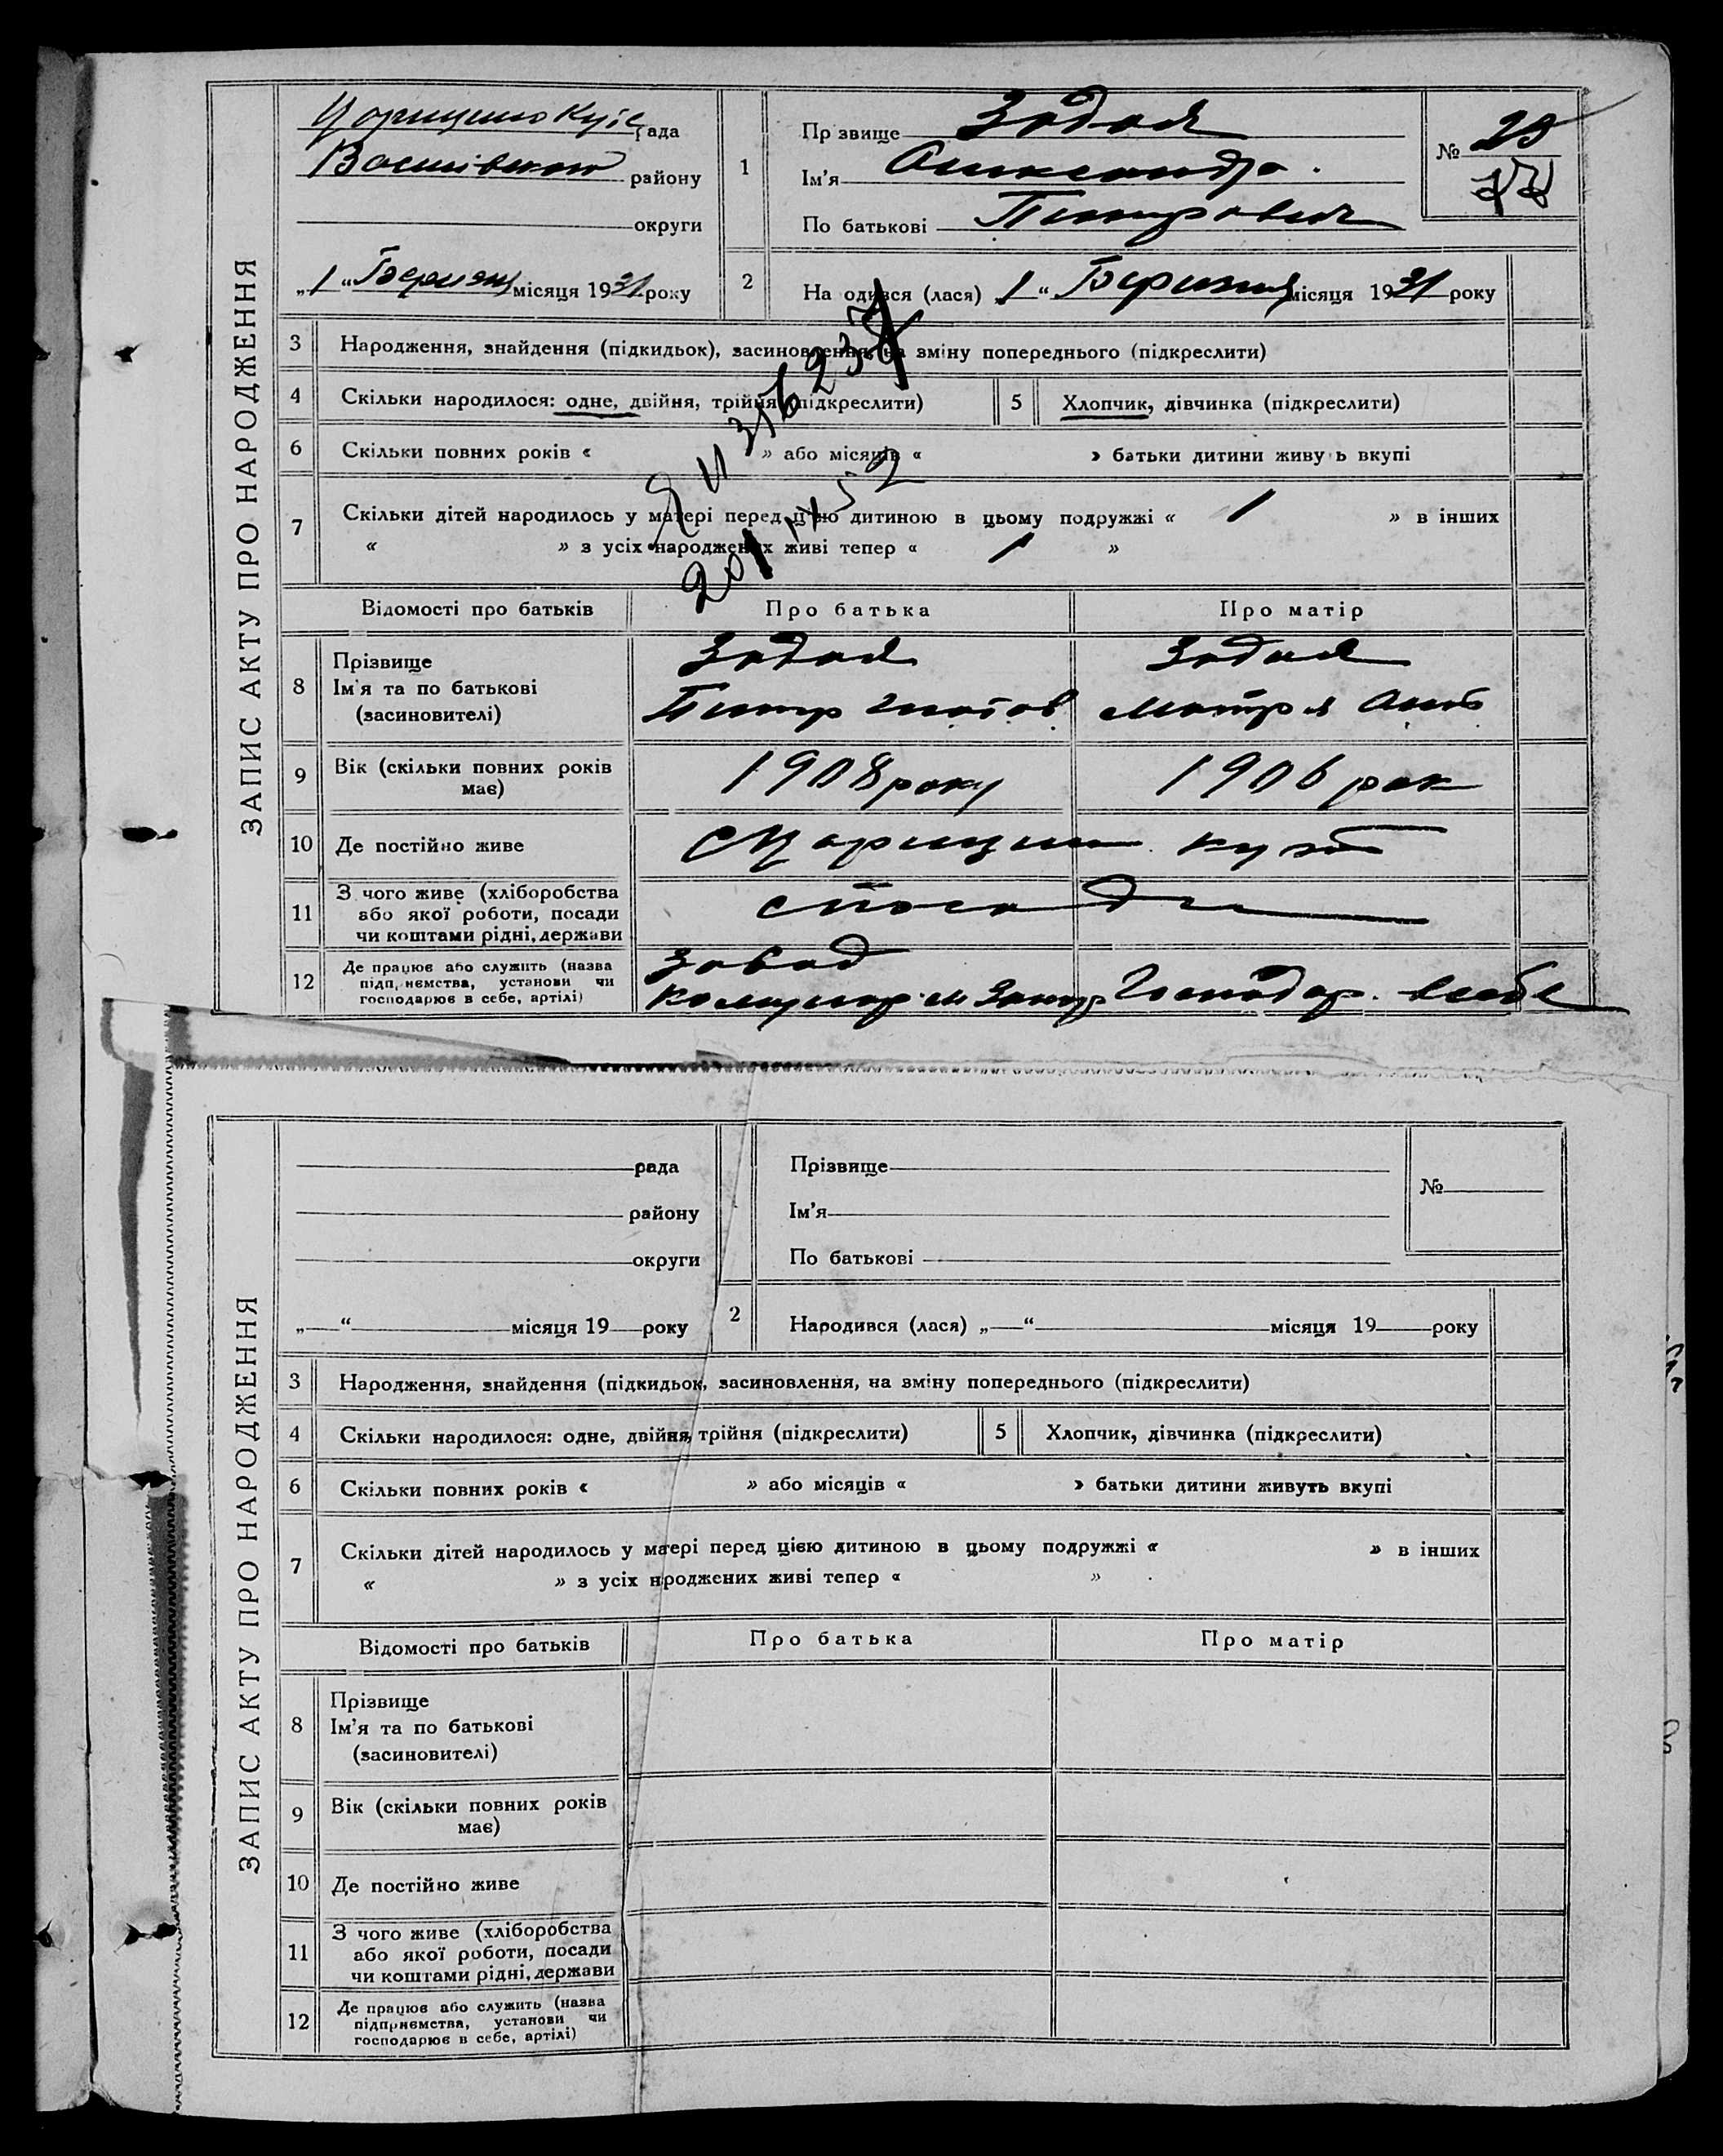 ЗАПИС АКТУ ПРО НАРОДЖЕННЯ
рада
району
округи
„1“ місяця 1931 року
1
Пр звище Задоя
Ім'я Олександр
По батькові Петрович
№ 28
2
На одився (лася) „1“ місяця 1931 року
3 Народження, знайдення (підкидьок), засиновлення, на зміну попереднього (підкреслити)
4 Скільки народилося: одне, двійня, трійня (підкреслити)
5 Хлопчик, дівчинка (підкреслити)
6 Скільки повних років « » або місяців « » батьки дитини живу ь вкупі
7 Скільки дітей народилось у матері перед цією дитиною в цьому подружжі « 1 » в інших
« » з усіх народжених живі тепер « 1 »
Відомості про батьків Про батька Про матір
8 Прізвище Задоя Задоя
Ім'я та по батькові Петр Мотря
(засиновителі)
9 Вік (скільки повних років 1908 року 1906 рок
має)
10 Де постійно живе
11 З чого живе (хліборобства
або якої роботи, посади
чи коштами рідні, держави
12 Де працює або служить (назва Завод
підп, иємства, установи чи
господарює в себе, артілі) Господар.
ЗАПИС АКТУ ПРО НАРОДЖЕННЯ
рада
району
округи
„ “ місяця 19 року
Прізвище
Ім'я
По батькові
№
2
Народився (лася) „ “ місяця 19 року
3 Народження, знайдення (підкидьок, засиновлення, на зміну попереднього (підкреслити)
4 Скільки народилося: одне, двійня, трійня (підкреслити)
5 Хлопчик, дівчинка (підкреслити)
6 Скільки повних років « » або місяців « » батьки дитини живуть вкупі
7 Скільки дітей народилось у матері перед цією дитиною в цьому подружжі « » в інших
« » з усіх нроджених живі тепер « »
Відомості про батьків Про батька Про матір
8 Прізвище
Ім'я та по батькові
(засиновителі)
9 Вік (скільки повних років
має)
10 Де постійно живе
11 З чого живе (хліборобства
або якої роботи, посади
чи коштами рідні, держави
12 Де працює або служить (назва
підприємства, установи чи
господарює в себе, артілі)